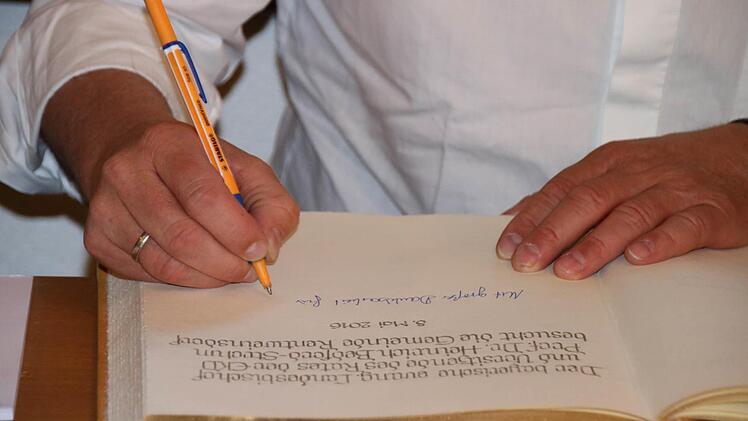 Der bayerische evang. Landesbischof
und Vorsitzende des Rates der EKD
Prof. Dr. Heinrich Bedford-Strohm
besucht die Gemeinde Rentweinsdorf
8. Mai 2016
Mit großer Dankbarkeit für
STABILO